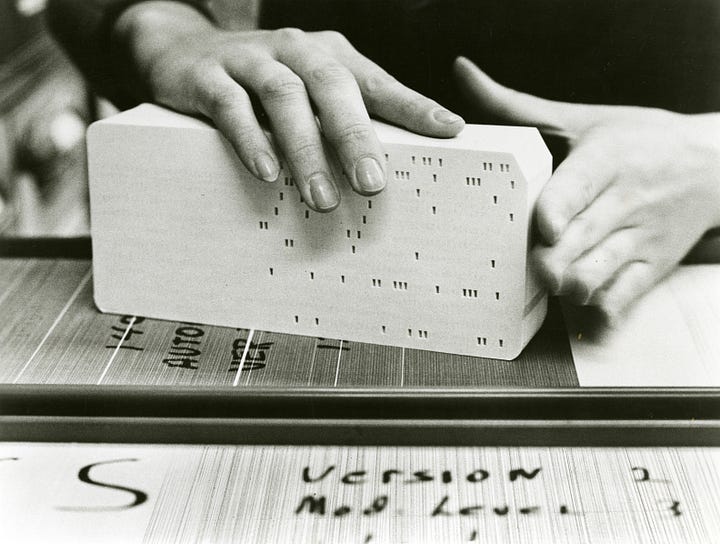 AUTO
VER
S
Version 2
Mod Level 3